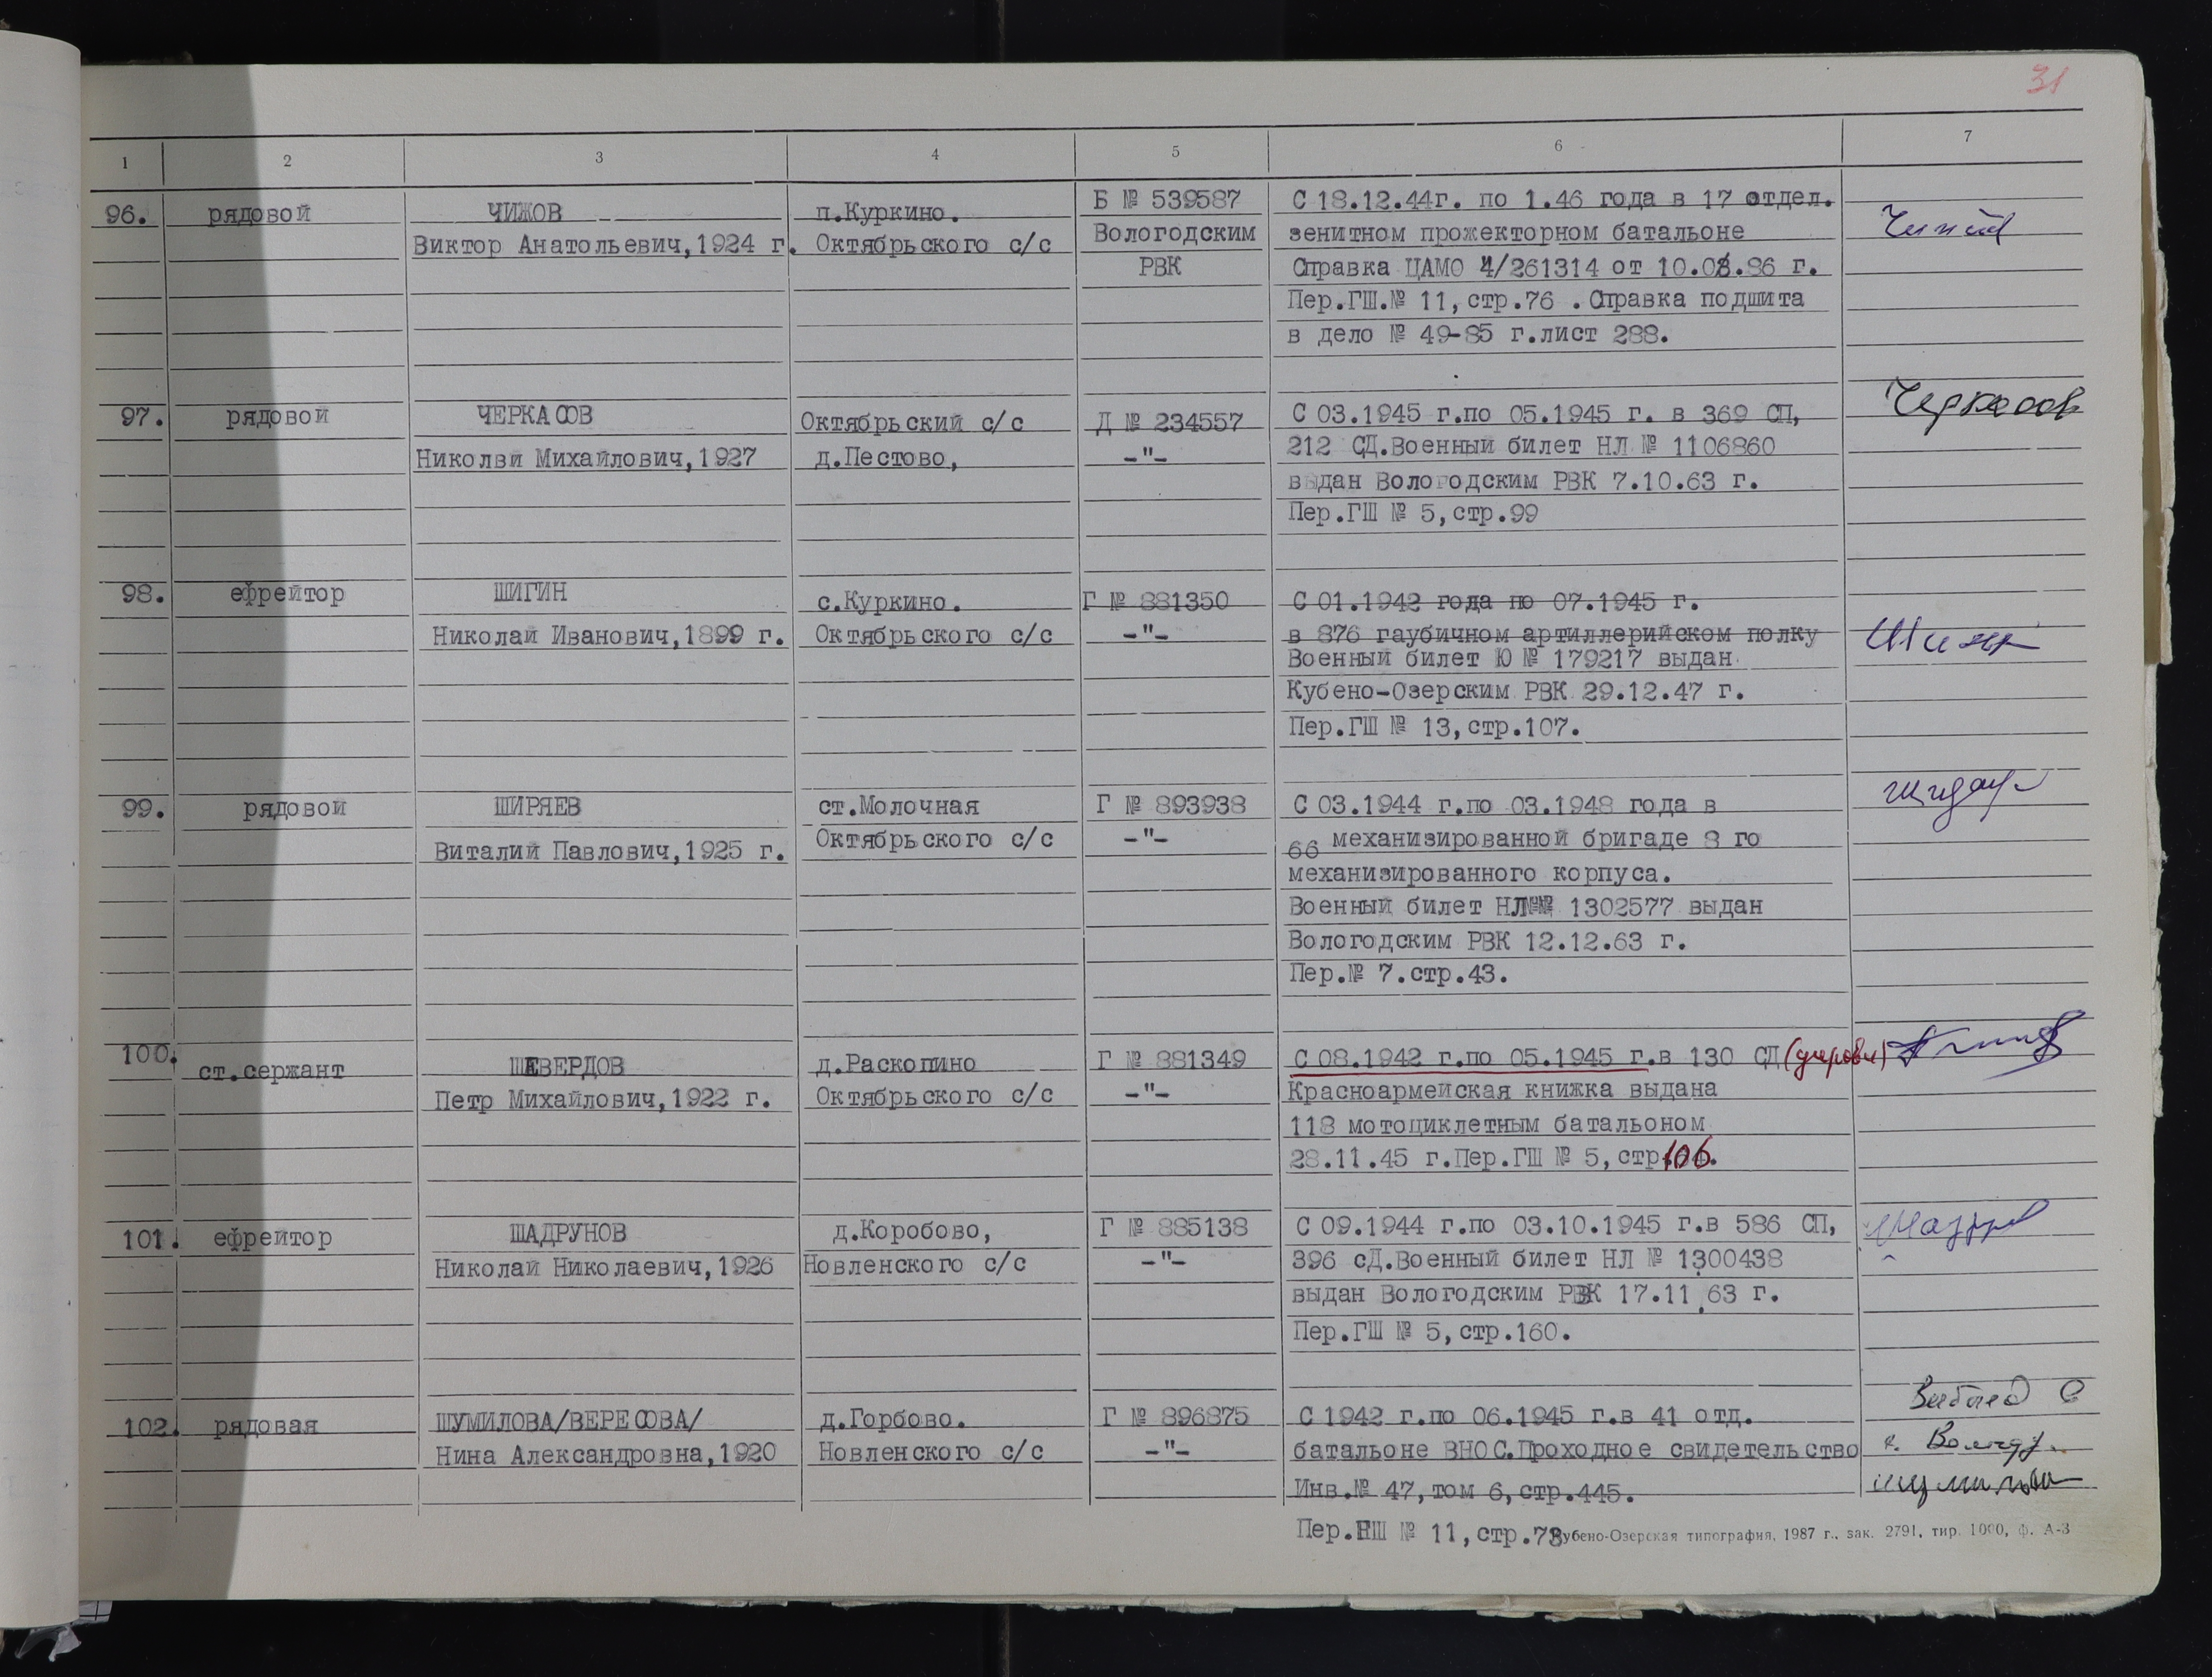 31
1 2 3 4 5 6 7
96. рядовой ЧИЖОВ п.Куркино. Б № 539587 С 18.12.44г. по 1.46 года в 17 отдел.
Виктор Анатольевич,1924 г. Октябрьского с/с Вологодским зенитном прожекторном батальоне
РВК Справка ЦАМО 4/261314 от 10.03.86 г.
Пер.ГШ.№ 11,стр.76 .Справка подшита
в дело № 49-85 г.лист 288.
97. рядовой ЧЕРКАСОВ Октябрьский с/с Д № 234557 С 03.1945 г.по 05.1945 г. в 369 СП, Черкасов
Николви Михайлович,1927 д.Пестово, -"- 212 СД.Военный билет НЛ № 1106860
выдан Вологодским РВК 7.10.63 г.
Пер.ГШ № 5,стр.99
98. ефрейтор ШИГИН с.Куркино. Г № 881350 С 01.1942 года по 07.1945 г.
Николай Иванович,1899 г. Октябрьского с/с -"- в 876 гаубичном артиллерийском полку
Военный билет Ю № 179217 выдан
Кубено-Озерским РВК 29.12.47 г.
Пер.ГШ № 13,стр.107.
99. рядовой ШИРЯЕВ ст.Молочная Г № 893938 С 03.1944 г.по 03.1948 года в
Виталий Павлович,1925 г. Октябрьского с/с -"- 66 механизированной бригаде 8 го
механизированного корпуса.
Военный билет НЛ№ 1302577 выдан
Вологодским РВК 12.12.63 г.
Пер.№ 7.стр.43.
100. ст.сержант ШЕВЕРДОВ д.Раскопино Г № 881349 С 08.1942 г.по 05.1945 г.в 130 СД
Петр Михайлович,1922 г. Октябрьского с/с -"- Красноармейская книжка выдана
118 мотоциклетным батальоном
28.11.45 г.Пер.ГШ № 5,стр.106.
101. ефрейтор ШАДРУНОВ д.Коробово, Г № 885138 С 09.1944 г.по 03.10.1945 г.в 586 СП,
Николай Николаевич,1926 Новленского с/с -"- 396 сД.Военный билет НЛ № 1300438
выдан Вологодским РВК 17.11.63 г.
Пер.ГШ № 5,стр.160.
102. рядовая ШУМИЛОВА/ВЕРЕСОВА/ д.Горбово. Г № 896875 С 1942 г.по 06.1945 г.в 41 отд.
Нина Александровна,1920 Новленского с/с -"- батальоне ВНОС.Проходное свидетельство г. Вологду.
Инв.№ 47,том 6,стр.445.
Пер.ГШ № 11,стр.73
Кубено-Озерская типография, 1987 г., зак. 2791, тир. 1000, ф. А-3